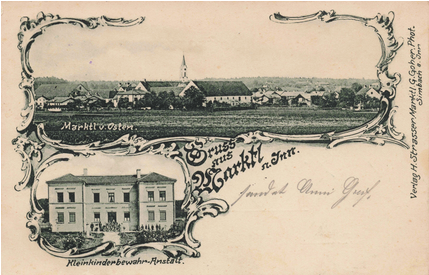 Marktl v. Osten.
Gruss
aus
Marktl
a. Inn.
Kleinkinderbewahr-Anstalt.
Verlag H. Strasser Marktl G. Goher, Phot.
Simbach a. Inn
sendet Anni